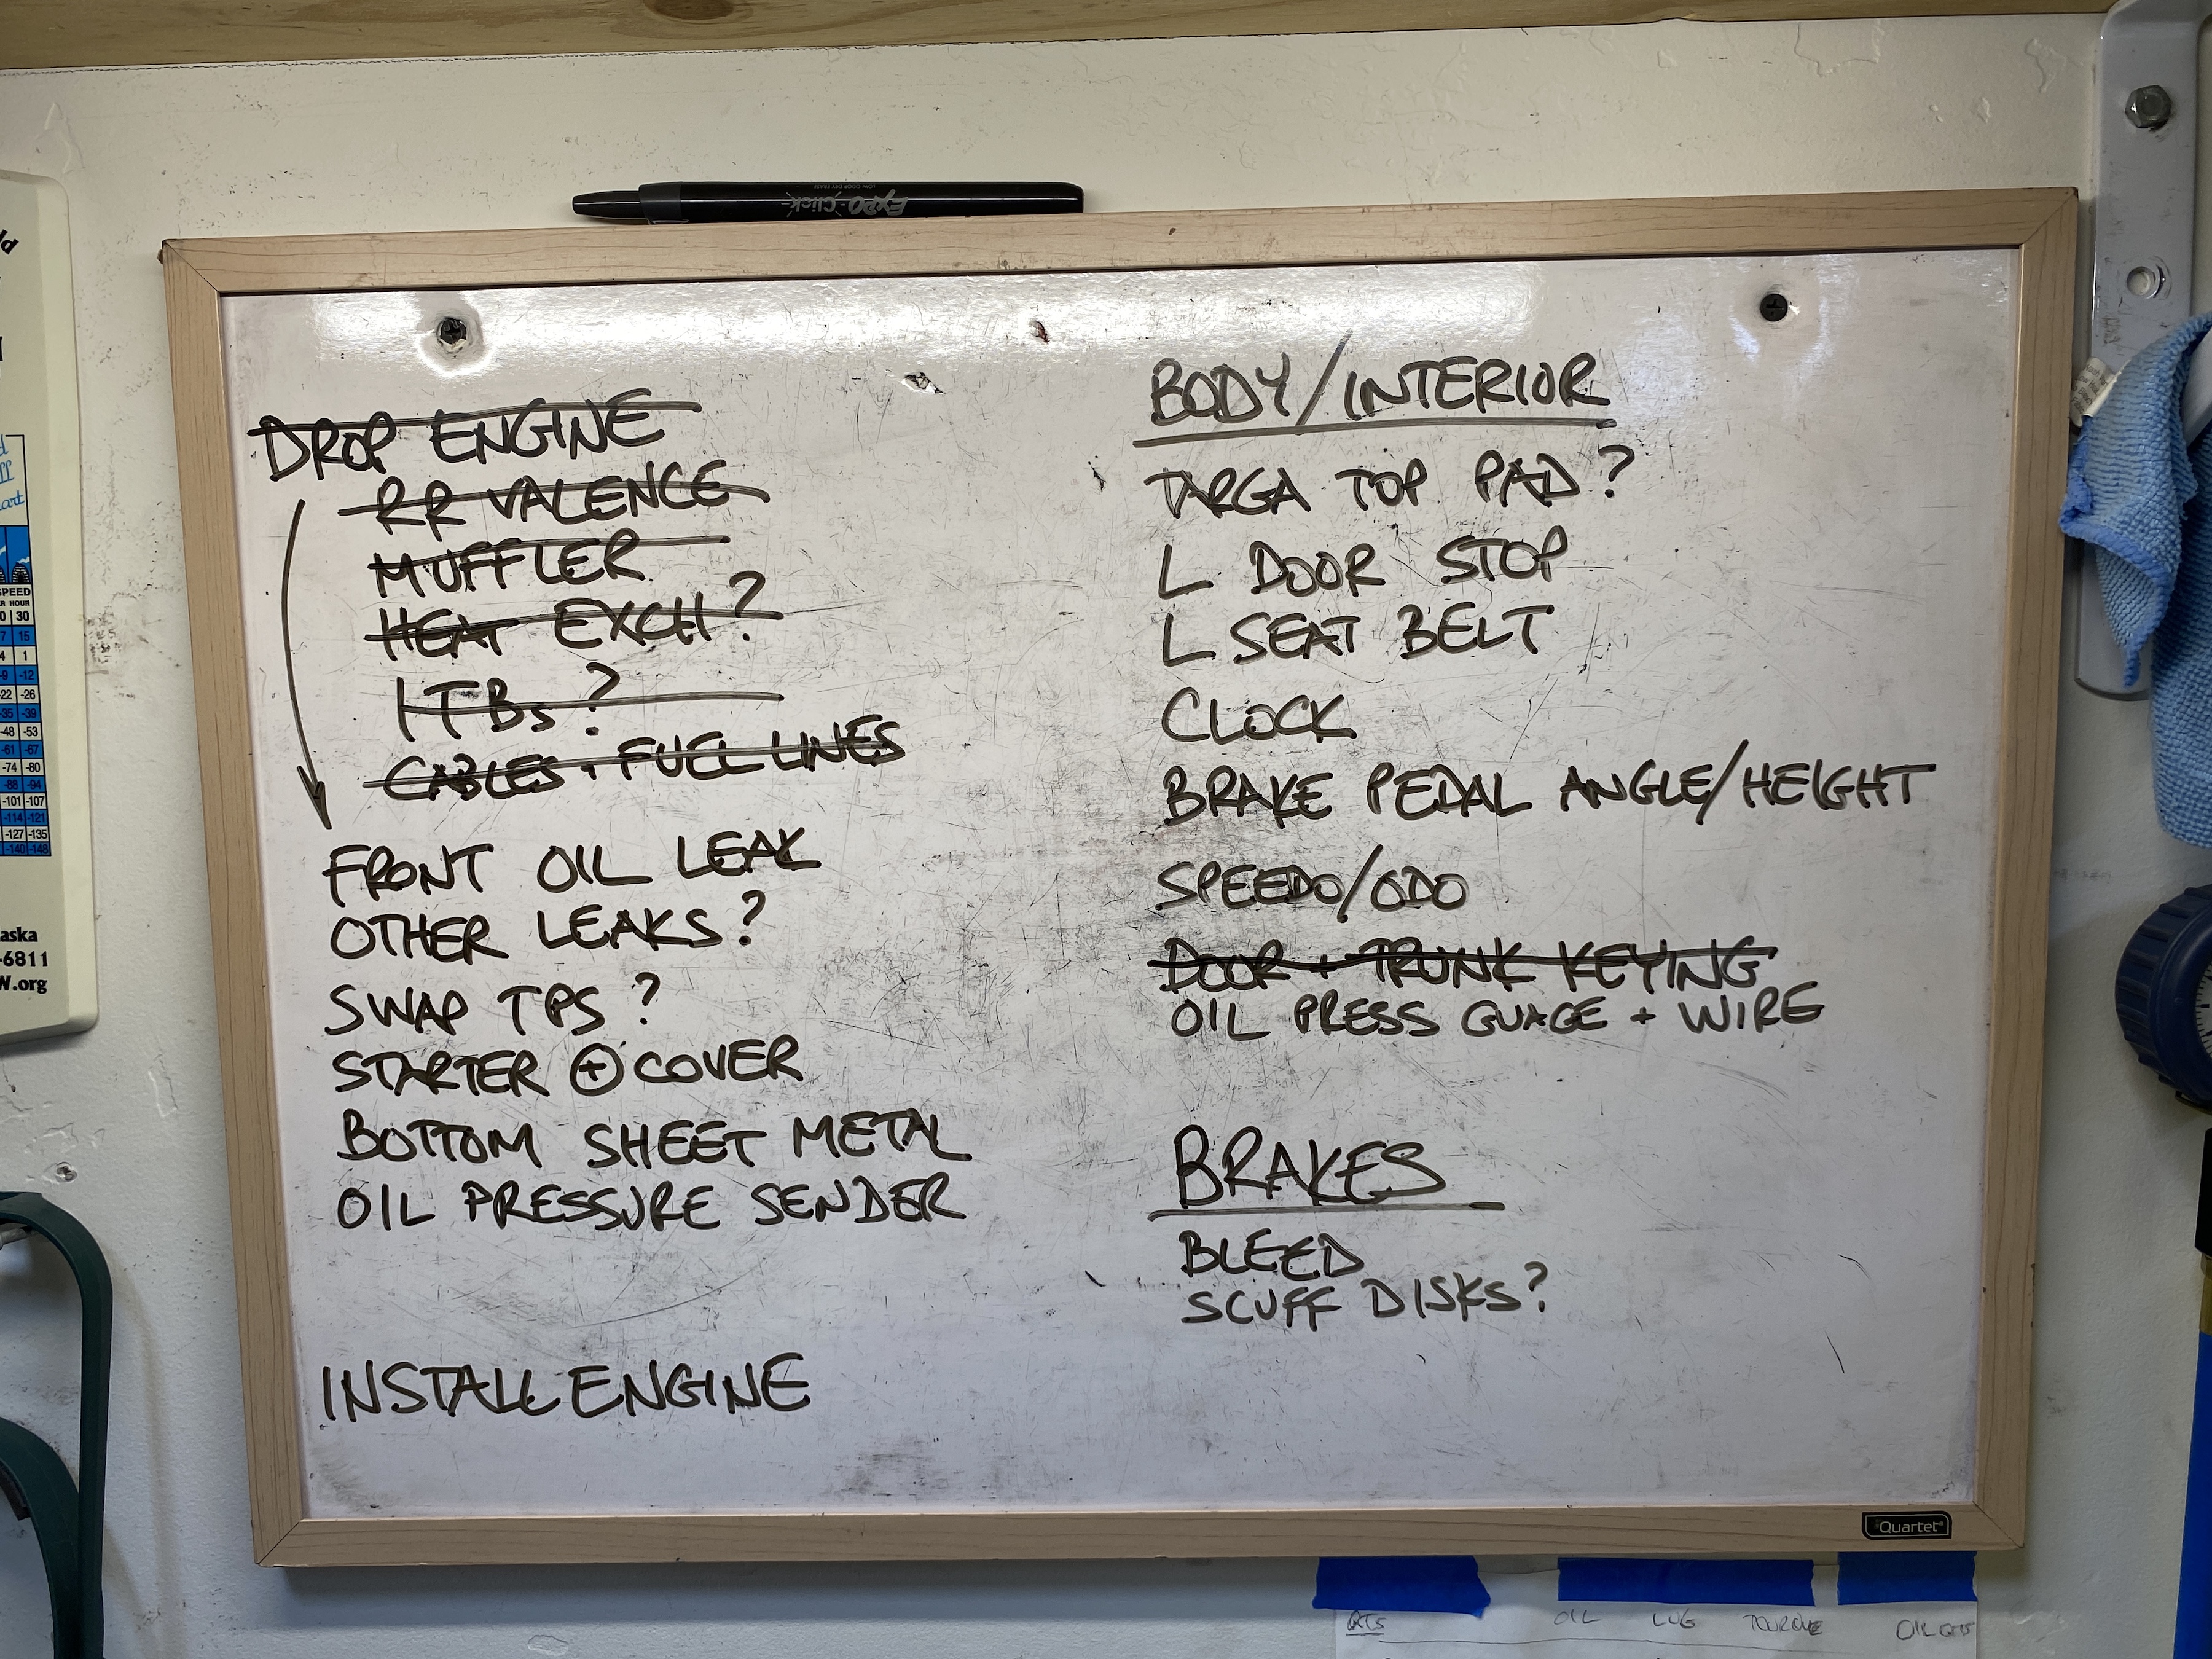 EXPO Click
LOW ODOR DRY ERASE
DROP ENGINE
RR VALENCE
MUFFLER
HEAT EXCH?
ITBs?
CABLES + FUEL LINES
FRONT OIL LEAK
OTHER LEAKS?
SWAP TPS?
STARTER + COVER
BOTTOM SHEET METAL
OIL PRESSURE SENDER
INSTALL ENGINE
BODY/INTERIOR
TARGA TOP PAD?
L DOOR STOP
L SEAT BELT
CLOCK
BRAKE PEDAL ANGLE/HEIGHT
SPEEDO/ODO
DOOR + TRUNK KEYING
OIL PRESS GUAGE + WIRE
BRAKES
BLEED
SCUFF DISKS?
Quartet
QTS OIL LUG TOURQUE OIL QTS
SPEED
HOUR
0 30
7 15
4 1
-9 -12
-22 -26
-35 -39
-48 -53
-61 -67
-74 -80
-88 -94
-101 -107
-114 -121
-127 -135
-140 -148
aska
-6811
W.org